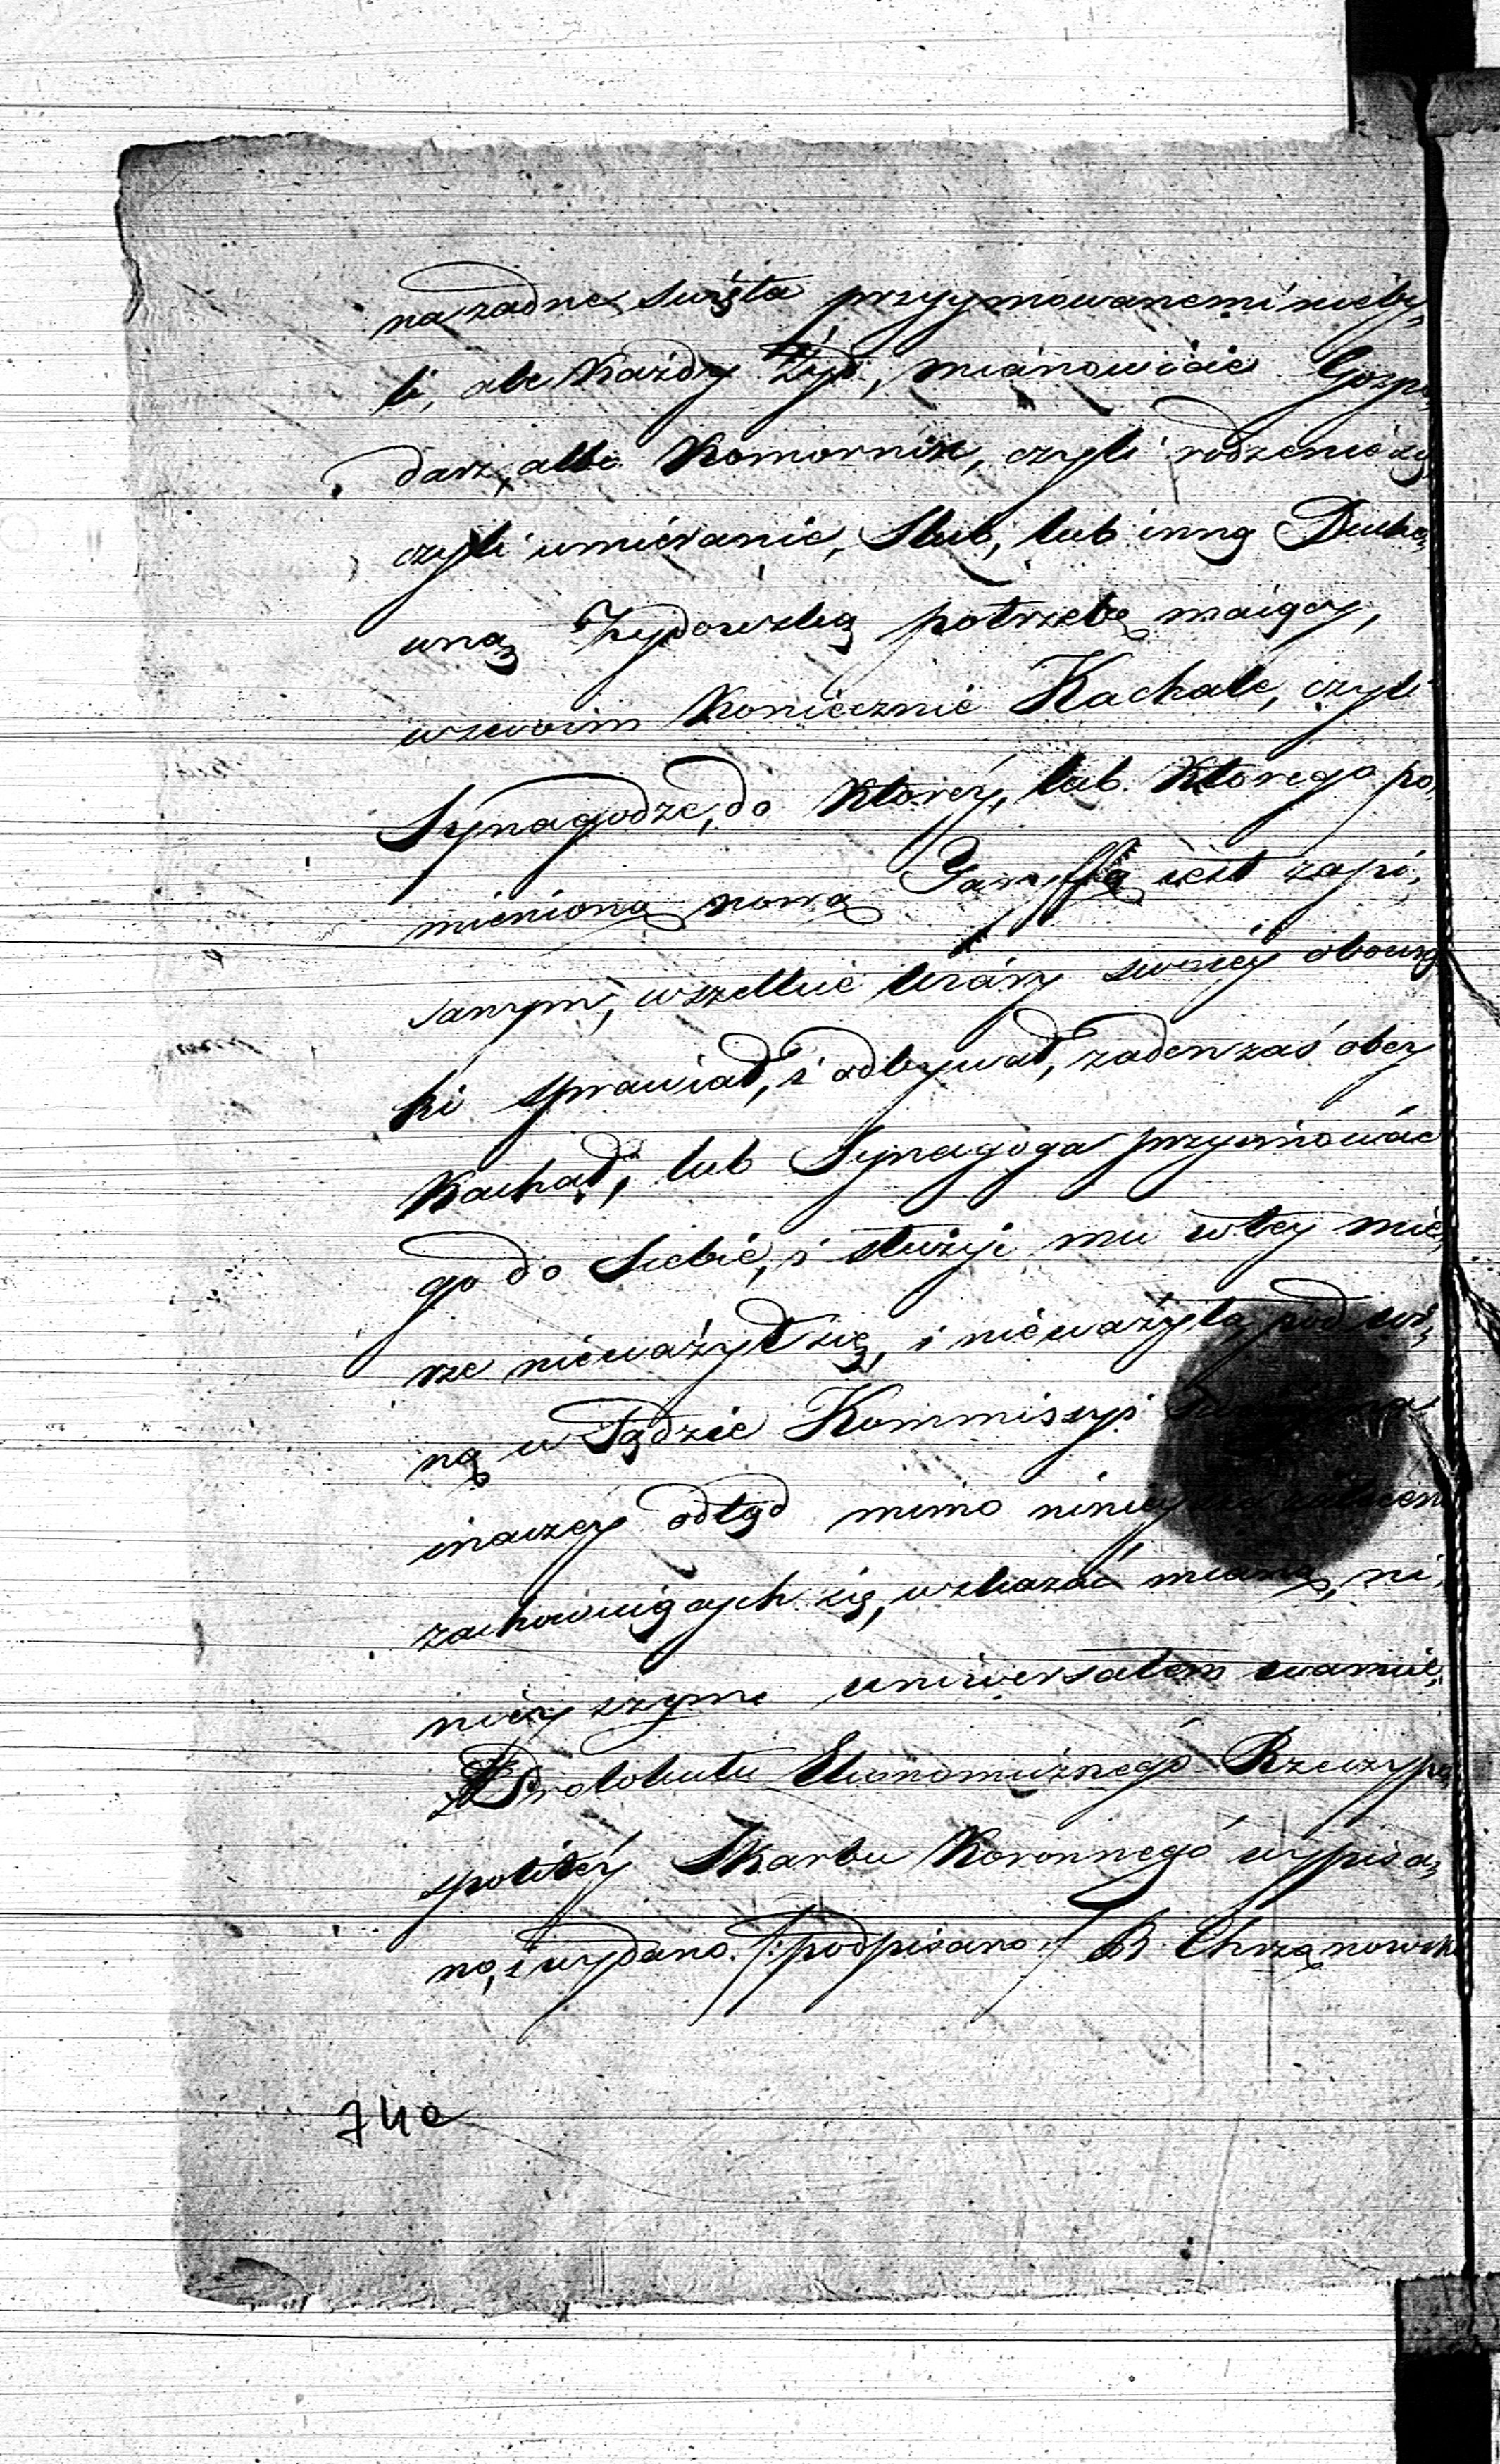 na żadne święta przyymowanemi nieby,
li, ale Każdy Żyd, mianowicie Gospo,
darz, albo Komornik, czyli rodzenie się
czyli umieranie, Slub, lub inną Ducho,
wną Zydowską potrzebę maiący,
w swoim Koniecznie Kachale, czyli
Synagodze, do Ktorey, lub Ktorego po,
mienioną nową Taryffą iest zapi,
sanym, wszelkie wiary swoiey obowią
ki sprawiał, i odbywał, żaden zaś obcy
Kachał, lub Synagoga przyimować
go do siebie, i służyć mu w tey mie,
rze nieważył się, i nieważyła pod wi,
ną w Sądzie Kommissyi na
inaczey odtąd mimo
zachowuiących się, wskazać mianą, ni,
nieyszym uniwersałem waruie,
z Protokułu Ekonomicznego Rzeczypo,
spolitey Skarbu Koronnego wypisa,
no, i wydano. /: podpisano :/ B. Chrzanowski
740